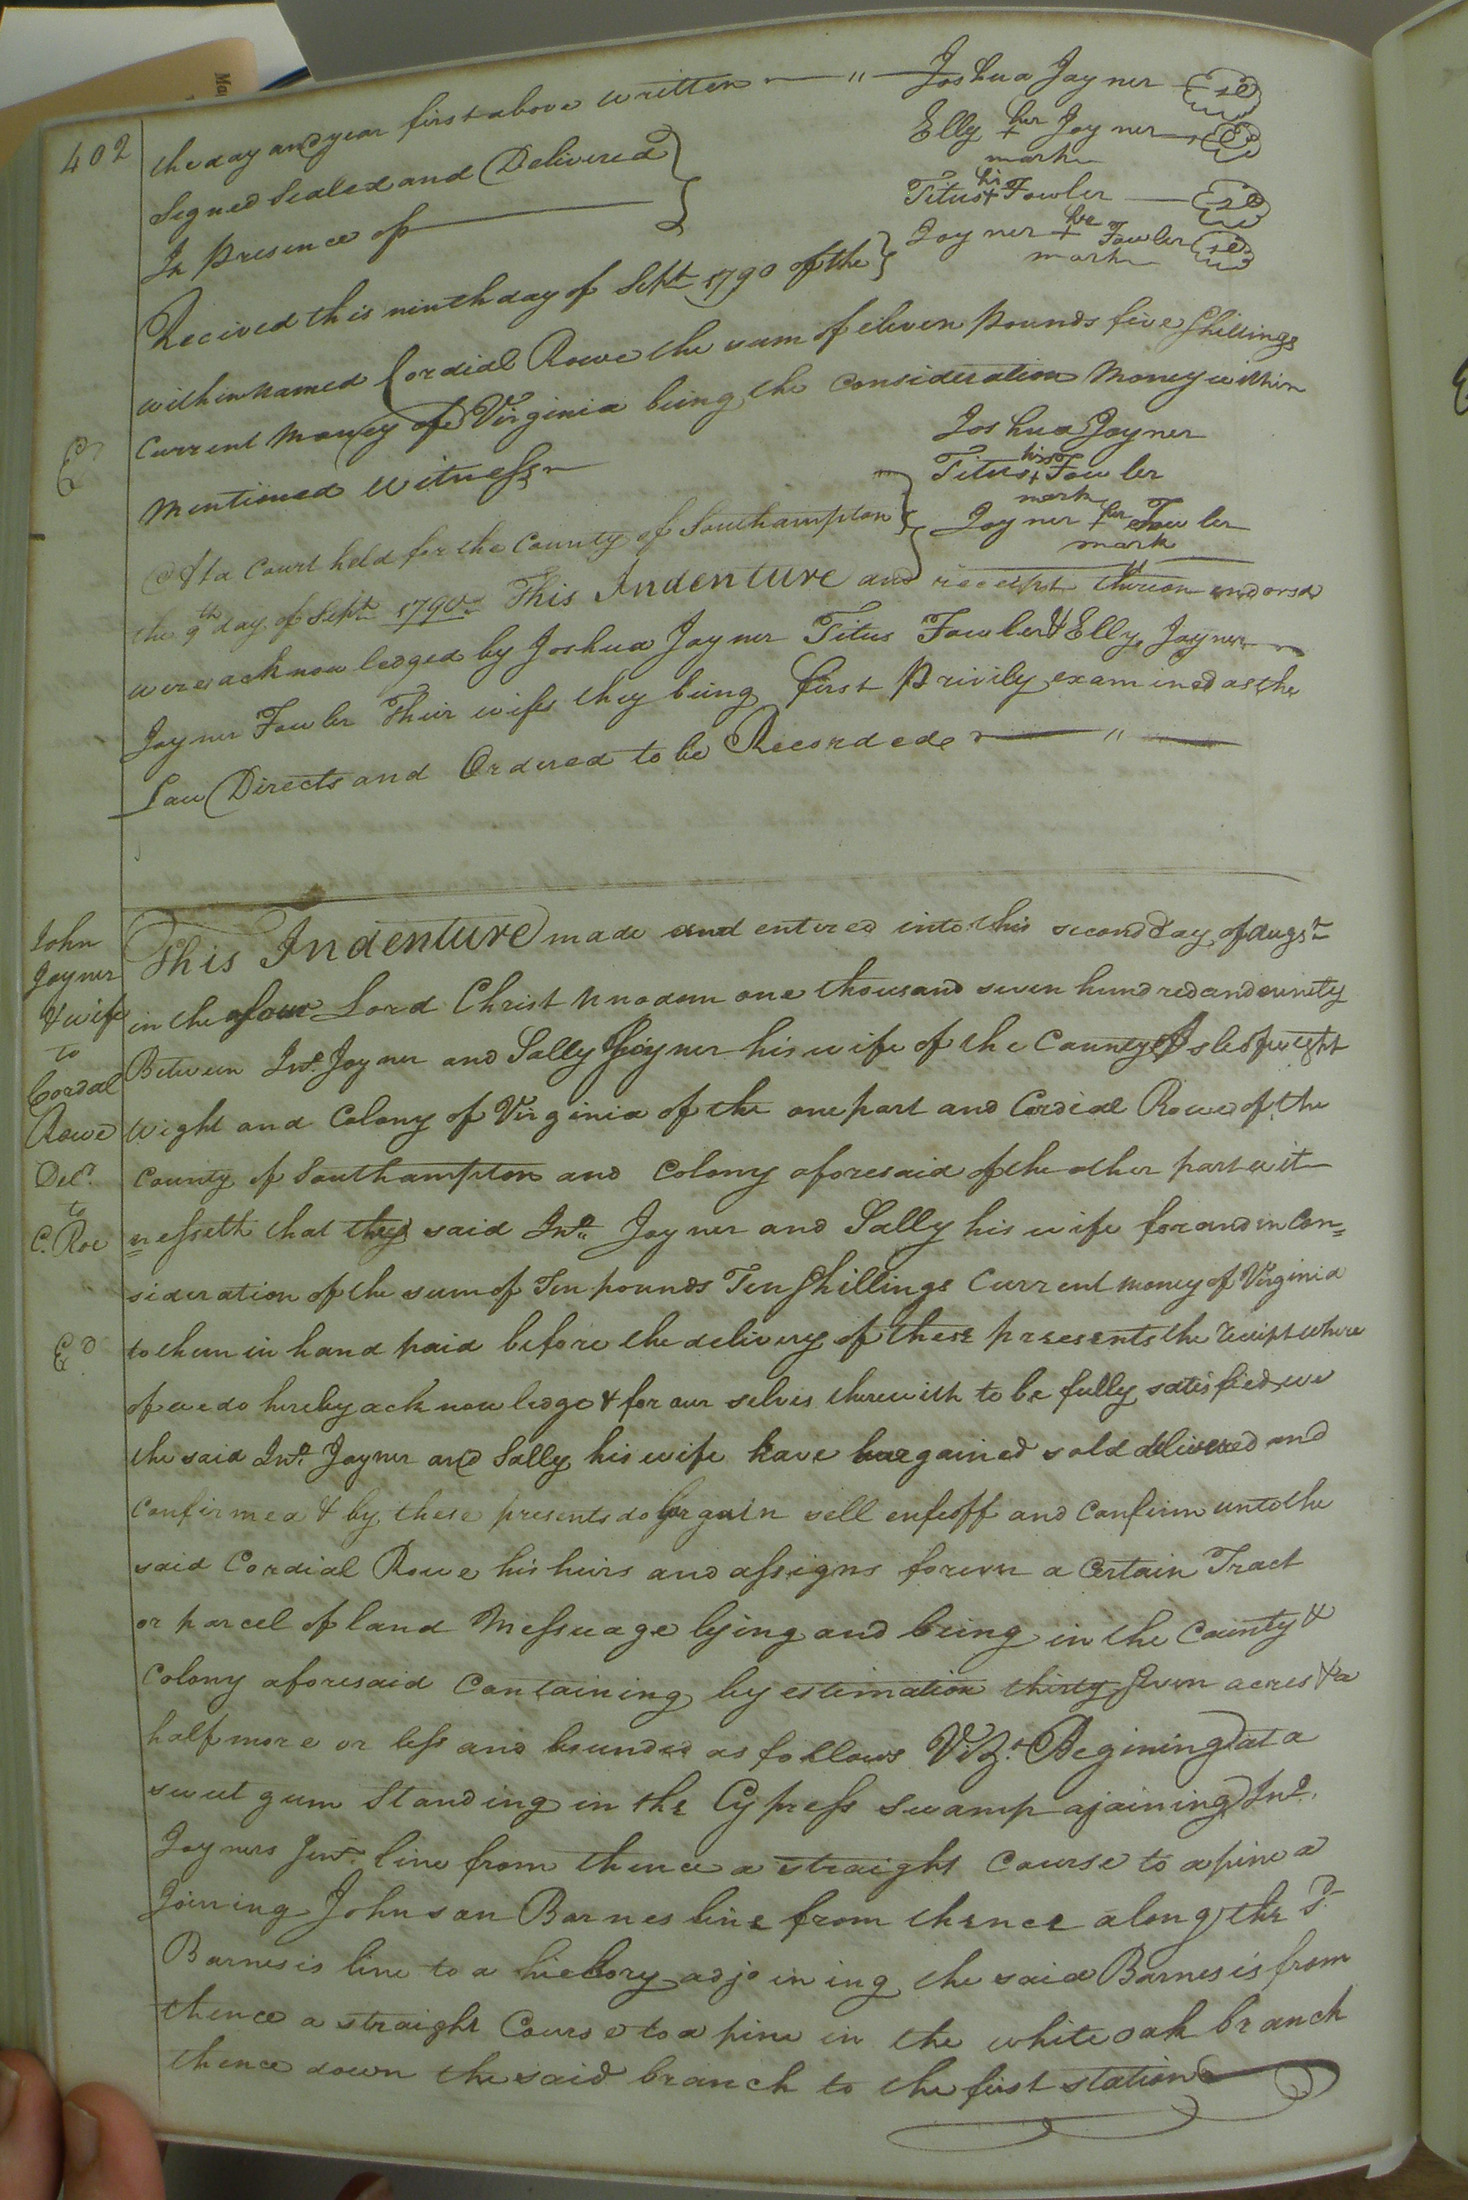 402
the day and year first above written — " — Joshua Joyner
Signed Sealed and Delivered } Elly her + mark Joyner
In Presence of Titus his + Fowler
Joyner her + mark Fowler
Recived this ninth day of Sept 1790 of the
within named Cordial Rowe the sum of eleven pounds five Shillings
Current Money of Virginia being the consideration Money within
Mentioned Witness
Joshua Joyner
Titus his + mark Fowler
Joyner her + mark Fowler
At a Court held for the County of Southampton
the 9th day of Sept 1790 This Indenture and receipt thereon endorsd
were acknowledged by Joshua Joyner Titus Fowler & Elly Joyner
Joyner Fowler Their wifes they being first Privily examined as the
Law Directs and Ordered to be Recorded
John
Joyner
& wife
to
Cordal
Rowe
Del.d
to
C. Roe
E.D
This Indenture made and entered into this second day of Augst
in the of our Lord Christ one thousand seven hundred and
Between Jno. Joyner and Sally Joyner his wife of the County of Isle of weight
Wight and Colony of Virginia of the one part and Cordial Rowe of the
County of Southampton and Colony aforesaid of the other part wit
nesseth that they said Jno. Joyner and Sally his wife for and in Con=
sideration of the sum of Ten pounds Ten Shillings Current money of Virginia
to them in hand paid before the delivery of these presents the receipt where
of we do hereby acknowledge & for our selves therewith to be fully satisfied we
the said Jno. Joyner and Sally his wife have bargained sold delivered and
Confirmed & by these presents do bargain sell enfeoff and Confirm unto the
said Cordial Rowe his heirs and assigns forever a Certain Tract
or parcel of land Messuage lying and being in the County &
Colony aforesaid Containing by estimation thirty seven acres & a
half more or less and bounded as follows Vizt. Begining at a
sweet gum Standing in the Cypress swamp ajoining Jno.
Joyners line from thence a straight Course to a pine a
Joining Johnson Barnes line from thence along the sd.
Barnesis line to a hickory adjoining the said Barnesis from
thence a straight Course to a pine in the white oak branch
thence down the said branch to the first station